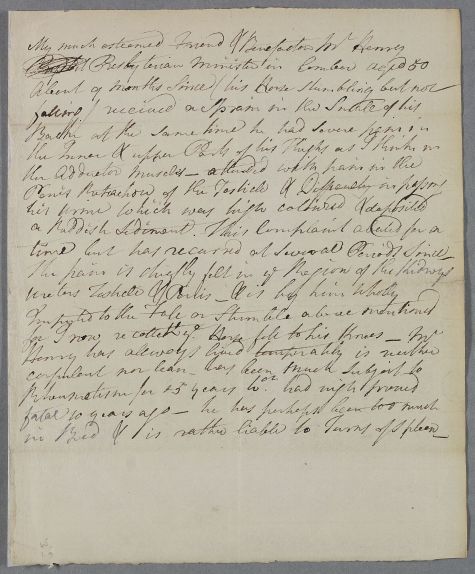 My much esteemed Friend & Benefactor Mr Henry
Presbyterian Minister in Comber aged 50
about 9 months since (his Horse stumbling but not
falling) received a Sprain in the Small of his
Back at the same time he had severe pains in
the Inner & upper Parts of his Thighs as I think in
the Adductor Muscles attended with pain in the
Penis Retraction of the Testicle & Difficulty in passing
his urine which was high coloured & deposited
a Reddish Sediment. This Complaint abated for a
time but has recurred at several Periods since
The pain is chiefly felt in ye Region of the Kidneys
ureters Testicle & Penis — & is by him wholly
Imputed to the Fall or Stumble above mentioned
for I now recollect ye Horse fell to his Knees — Mr
Henry has allways lived temperately is neither
corpulent nor lean has been much subject to
Rheumatism for 25 years wch had nigh proved
fatal 10 years ago — he has perhaps been too much
in Bed & is rather liable to Turns of Spleen